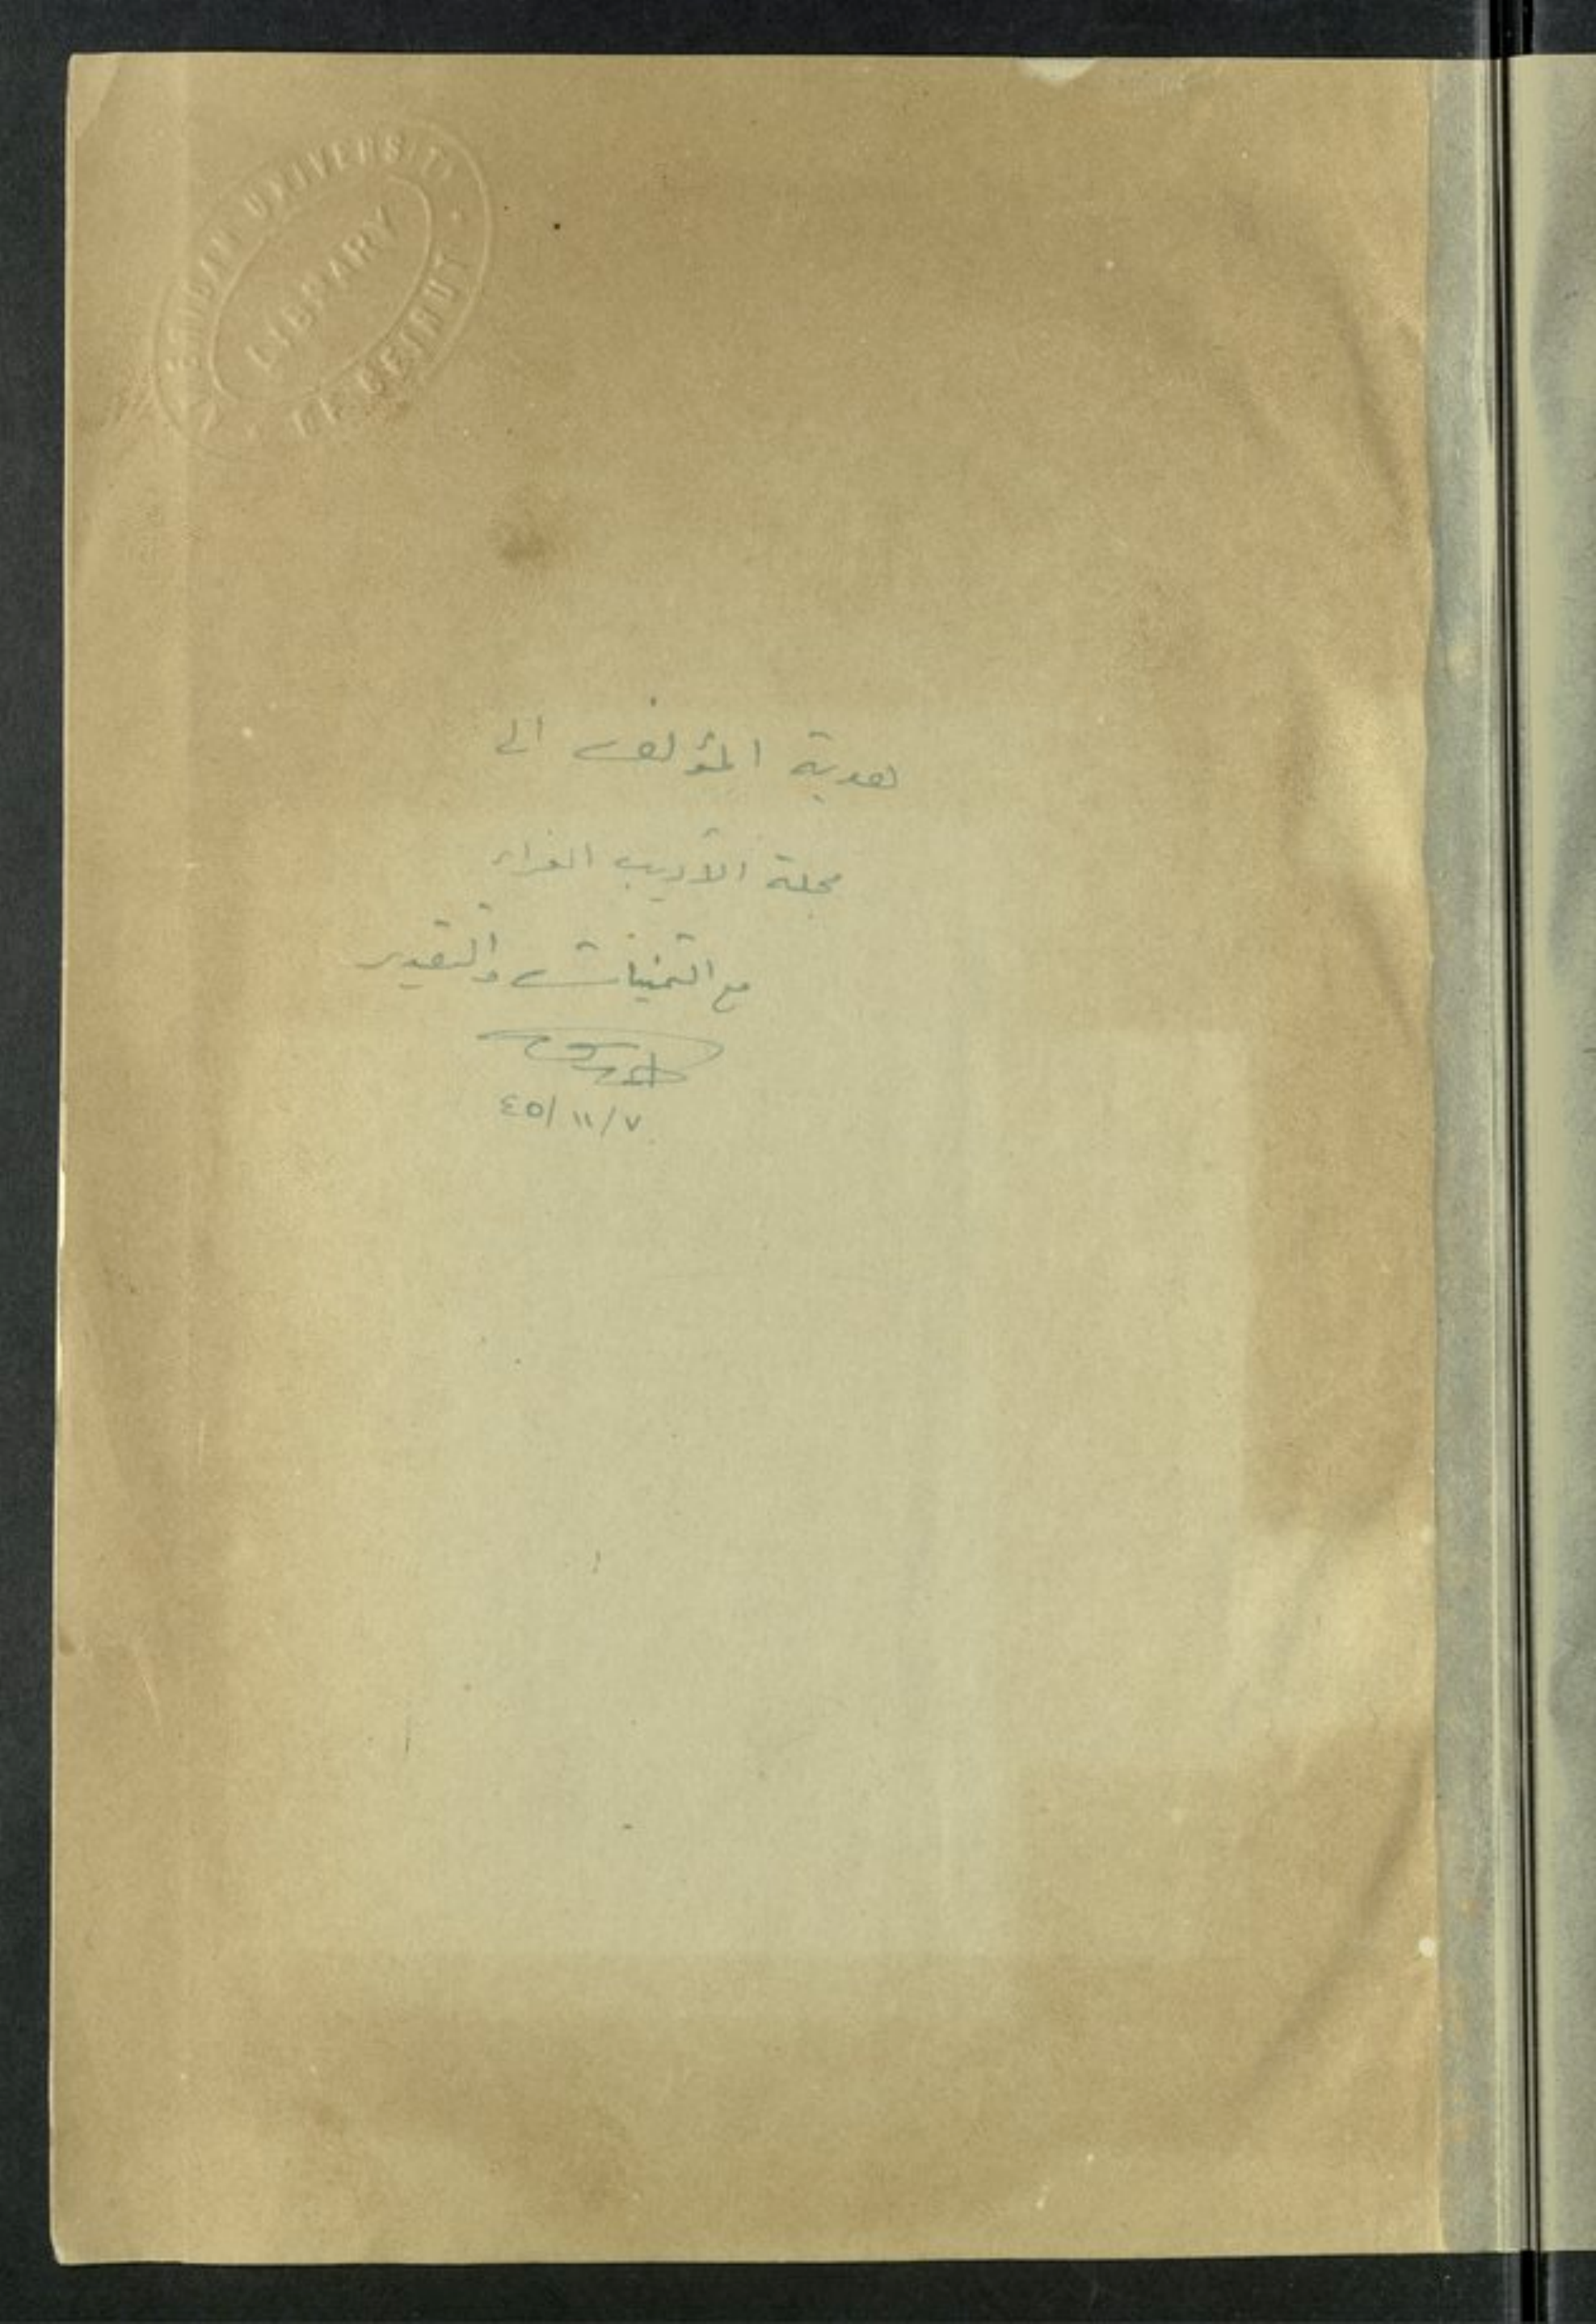 AMERICAN UNIVERSITY
LIBRARY
OF BEIRUT
هدية المؤلف الى
مجلة الأديب الغراء
مع التمنيات والتقدير
٧/١١/٤٥